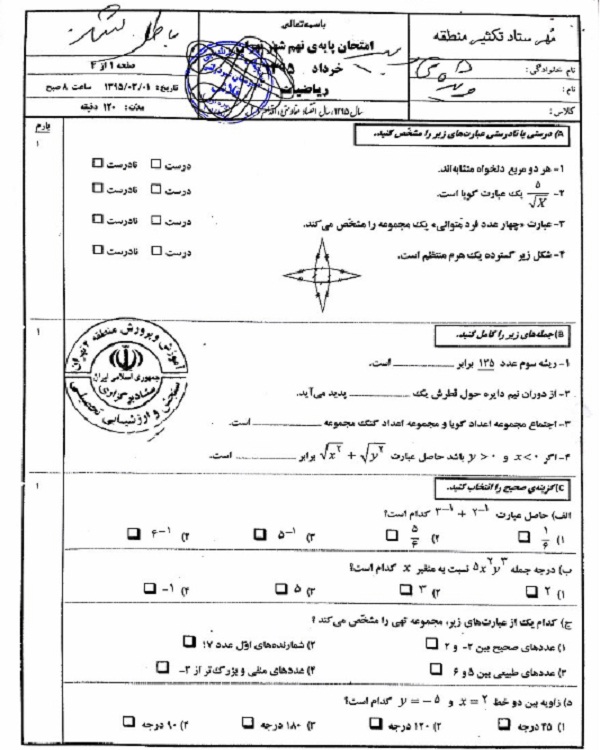 باسمه‌تعالی
مُهر ستاد تکثیر منطقه
امتحان پایه‌ی نهم شهر تهران
خرداد ۱۳۹۵
ریاضیات
نام خانوادگی:
نام:
کلاس:
صفحه ۱ از ۴
تاریخ: ۱۳۹۵/۰۳/۰۱ ساعت ۸ صبح
مدت: ۱۲۰ دقیقه
بارم
A) درستی یا نادرستی عبارت‌های زیر را مشخّص کنید.
۱
۱- هر دو مربع دلخواه متشابه‌اند. درست □ نادرست □
۲- ۵/√x یک عبارت گویا است. درست □ نادرست □
۳- عبارت «چهار عدد فرد متوالی» یک مجموعه را مشخّص می‌کند. درست □ نادرست □
۴- شکل زیر گسترده یک هرم منتظم است. درست □ نادرست □
B) جمله‌های زیر را کامل کنید.
۱
۱- ریشه سوم عدد ۱۲۵ برابر ............ است.
۲- از دوران نیم دایره حول قطرش یک ............ پدید می‌آید.
۳- اجتماع مجموعه اعداد گویا و مجموعه اعداد گنگ مجموعه ............ است.
۴- اگر x<۰ و y>۰ باشد حاصل عبارت √x² + √y² برابر ............ است.
آموزش و پرورش منطقه ۲ تهران
جمهوری اسلامی ایران
سنجش و ارزشیابی تحصیلی
C) گزینه‌ی صحیح را انتخاب کنید.
۱
الف) حاصل عبارت ۲⁻¹ + ۳⁻¹ کدام است؟
۱) ۱/۶ □ ۲) ۵/۶ □ ۳) ۵⁻¹ □ ۴) ۶⁻¹ □
ب) درجه جمله ۵x²y³ نسبت به متغیر x کدام است؟
۱) ۲ □ ۲) ۳ □ ۳) ۵ □ ۴) ۱- □
ج) کدام یک از عبارت‌های زیر، مجموعه تهی را مشخّص می‌کند ؟
۱) عددهای صحیح بین ۲- و ۲ □ ۲) شمارنده‌های اوّل عدد ۷ □
۳) عددهای طبیعی بین ۵ و ۶ □ ۴) عددهای منفی و بزرگ‌تر از ۳- □
د) زاویه بین دو خط x = ۲ و y = -۵ کدام است؟
۱) ۴۵ درجه □ ۲) ۱۲۰ درجه □ ۳) ۱۸۰ درجه □ ۴) ۹۰ درجه □